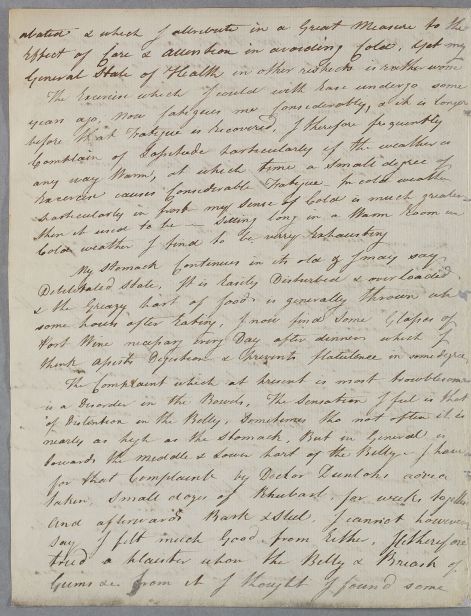 abated & which I attribute in a Great Measure to the
Effect of Care & attention in avoiding Cold. Yet my
General State of Health in other respects is rather worse
The Exercise which I could with Ease undergo some
years ago, Now fatigues me Considerably, & it is longer
before that Fatigue is recovered. I therefore frequently
Complain of Lassitude particularly if the weather is
any way Warm, at which time a small degree of
Exercise causes Considerable Fatigue. In cold weather
particularly in frost my sense of Cold is much greater
then it used to be — Sitting long in a Warm Room in
Cold weather I find to be very Exhausting
My Stomach Continues in its old & I may say
Debilitated State. It is Easily Disturbed & overloaded
& the Greasy part of food is generally thrown up
some hours after Eating. I now find some Glasses of
Port Wine necessary Every Day after dinner which I
think assists Digestion & prevents flatulence in some degree
The Complaint which at present is most troublesome
is a Disorder in the Bowels. The Sensation I feel is that
of Distention in the Belly, Sometimes tho not often it is
nearly as high as the Stomach, But in General is
towards the middle & Lower part of the Belly. I have
for that Complaint by Doctor Dunlops advice
taken small doses of Rhubarb for weeks together
And afterwards Bark & Steel. I cannot however
say I felt much Good from Either. I therefore
tried a plaister upon the Belly & Breast of
Gums &c from it I thought I found some